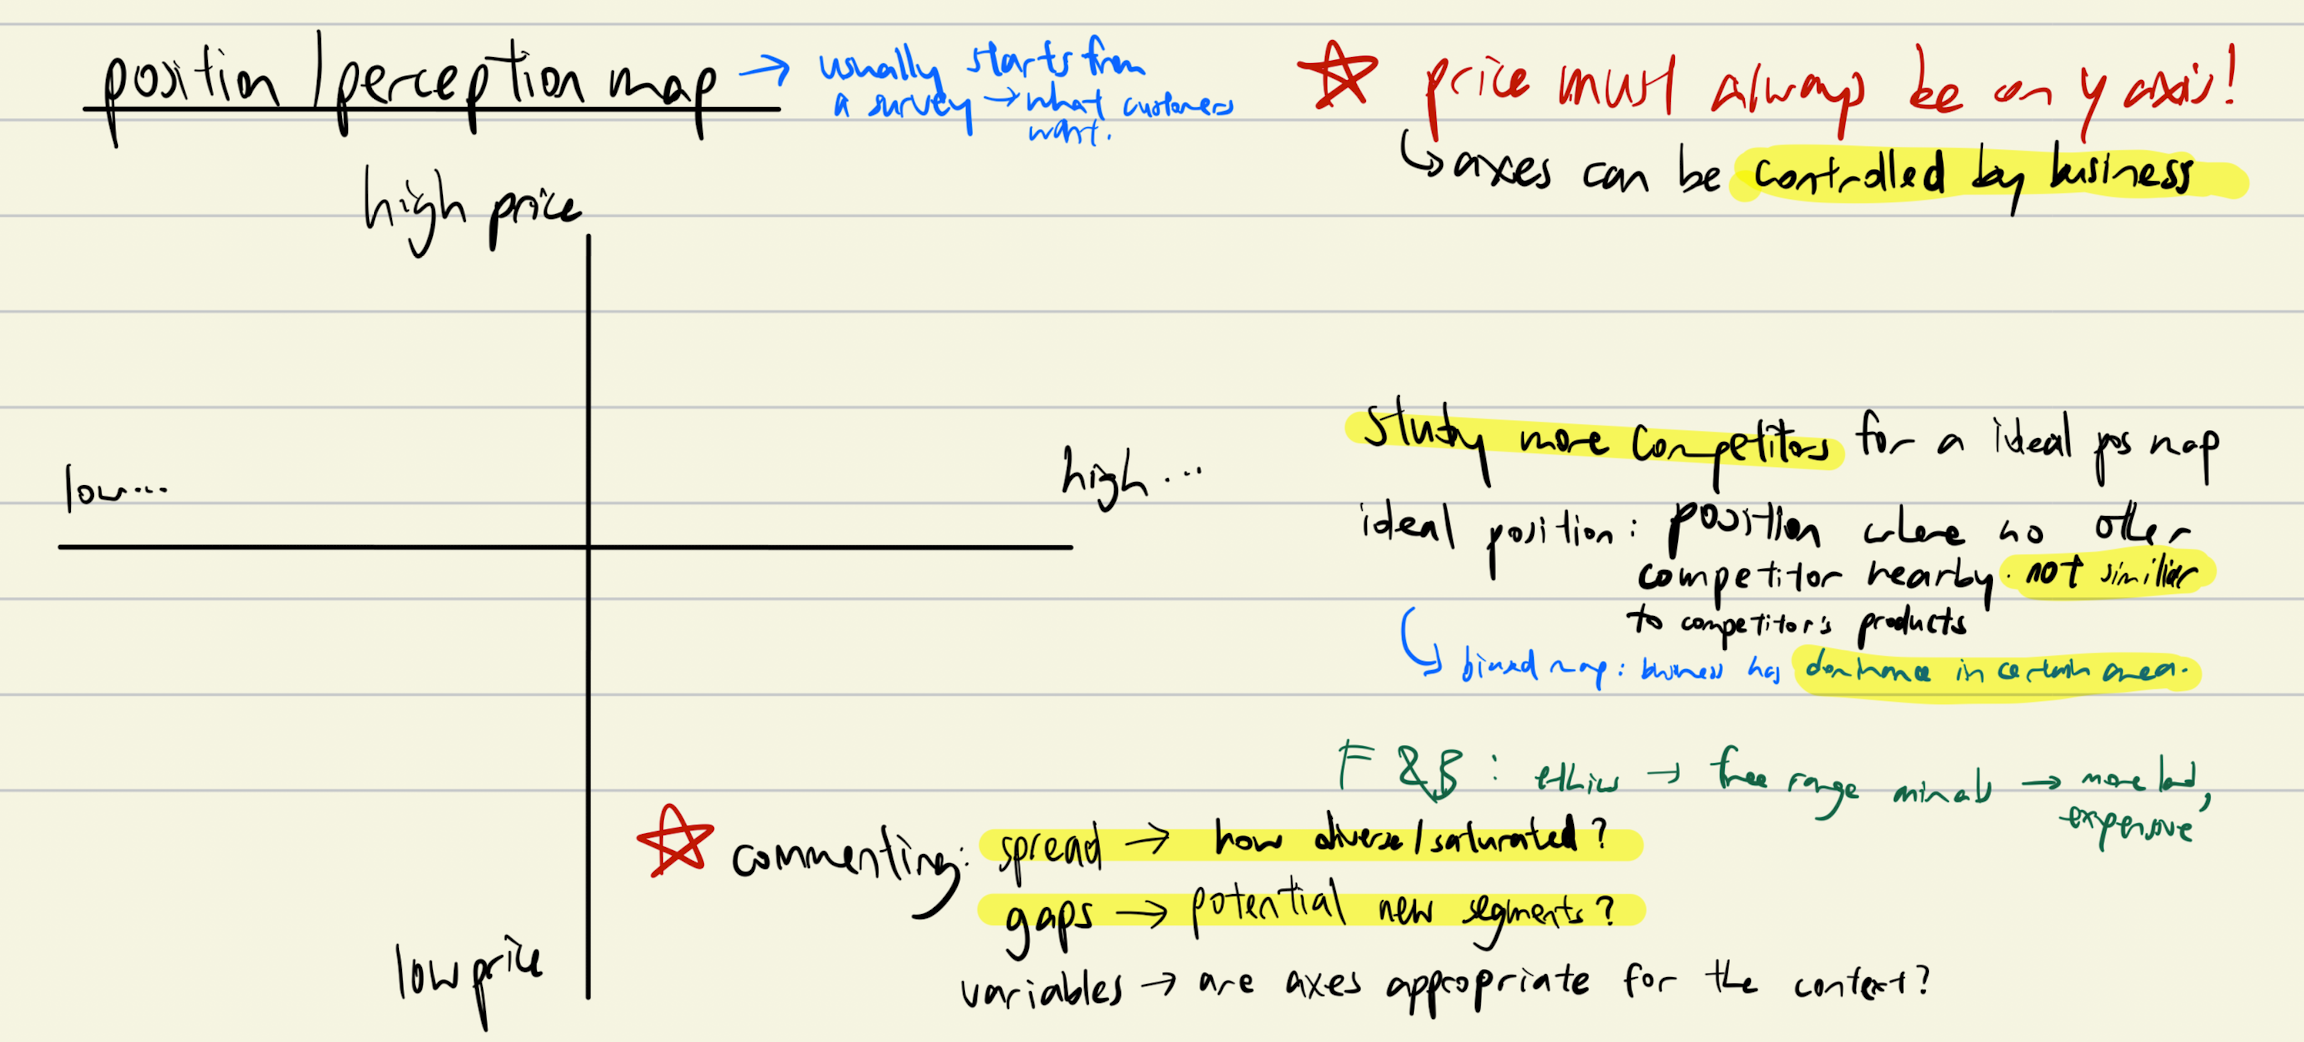 position / perception map → usually starts from
a survey → what customers
want.
☆ price must always be on y axis!
↳ axes can be controlled by business
high price
low...
high ...
study more competitors for a ideal pos map
ideal position: position where no other
competitor nearby. not similar
to competitor's products
↳ biased map: business has dominance in certain area.
F & B: ethics → free range animals → more land,
expensive
☆ commenting: spread → how diverse / saturated?
gaps → potential new segments?
variables → are axes appropriate for the context?
low price